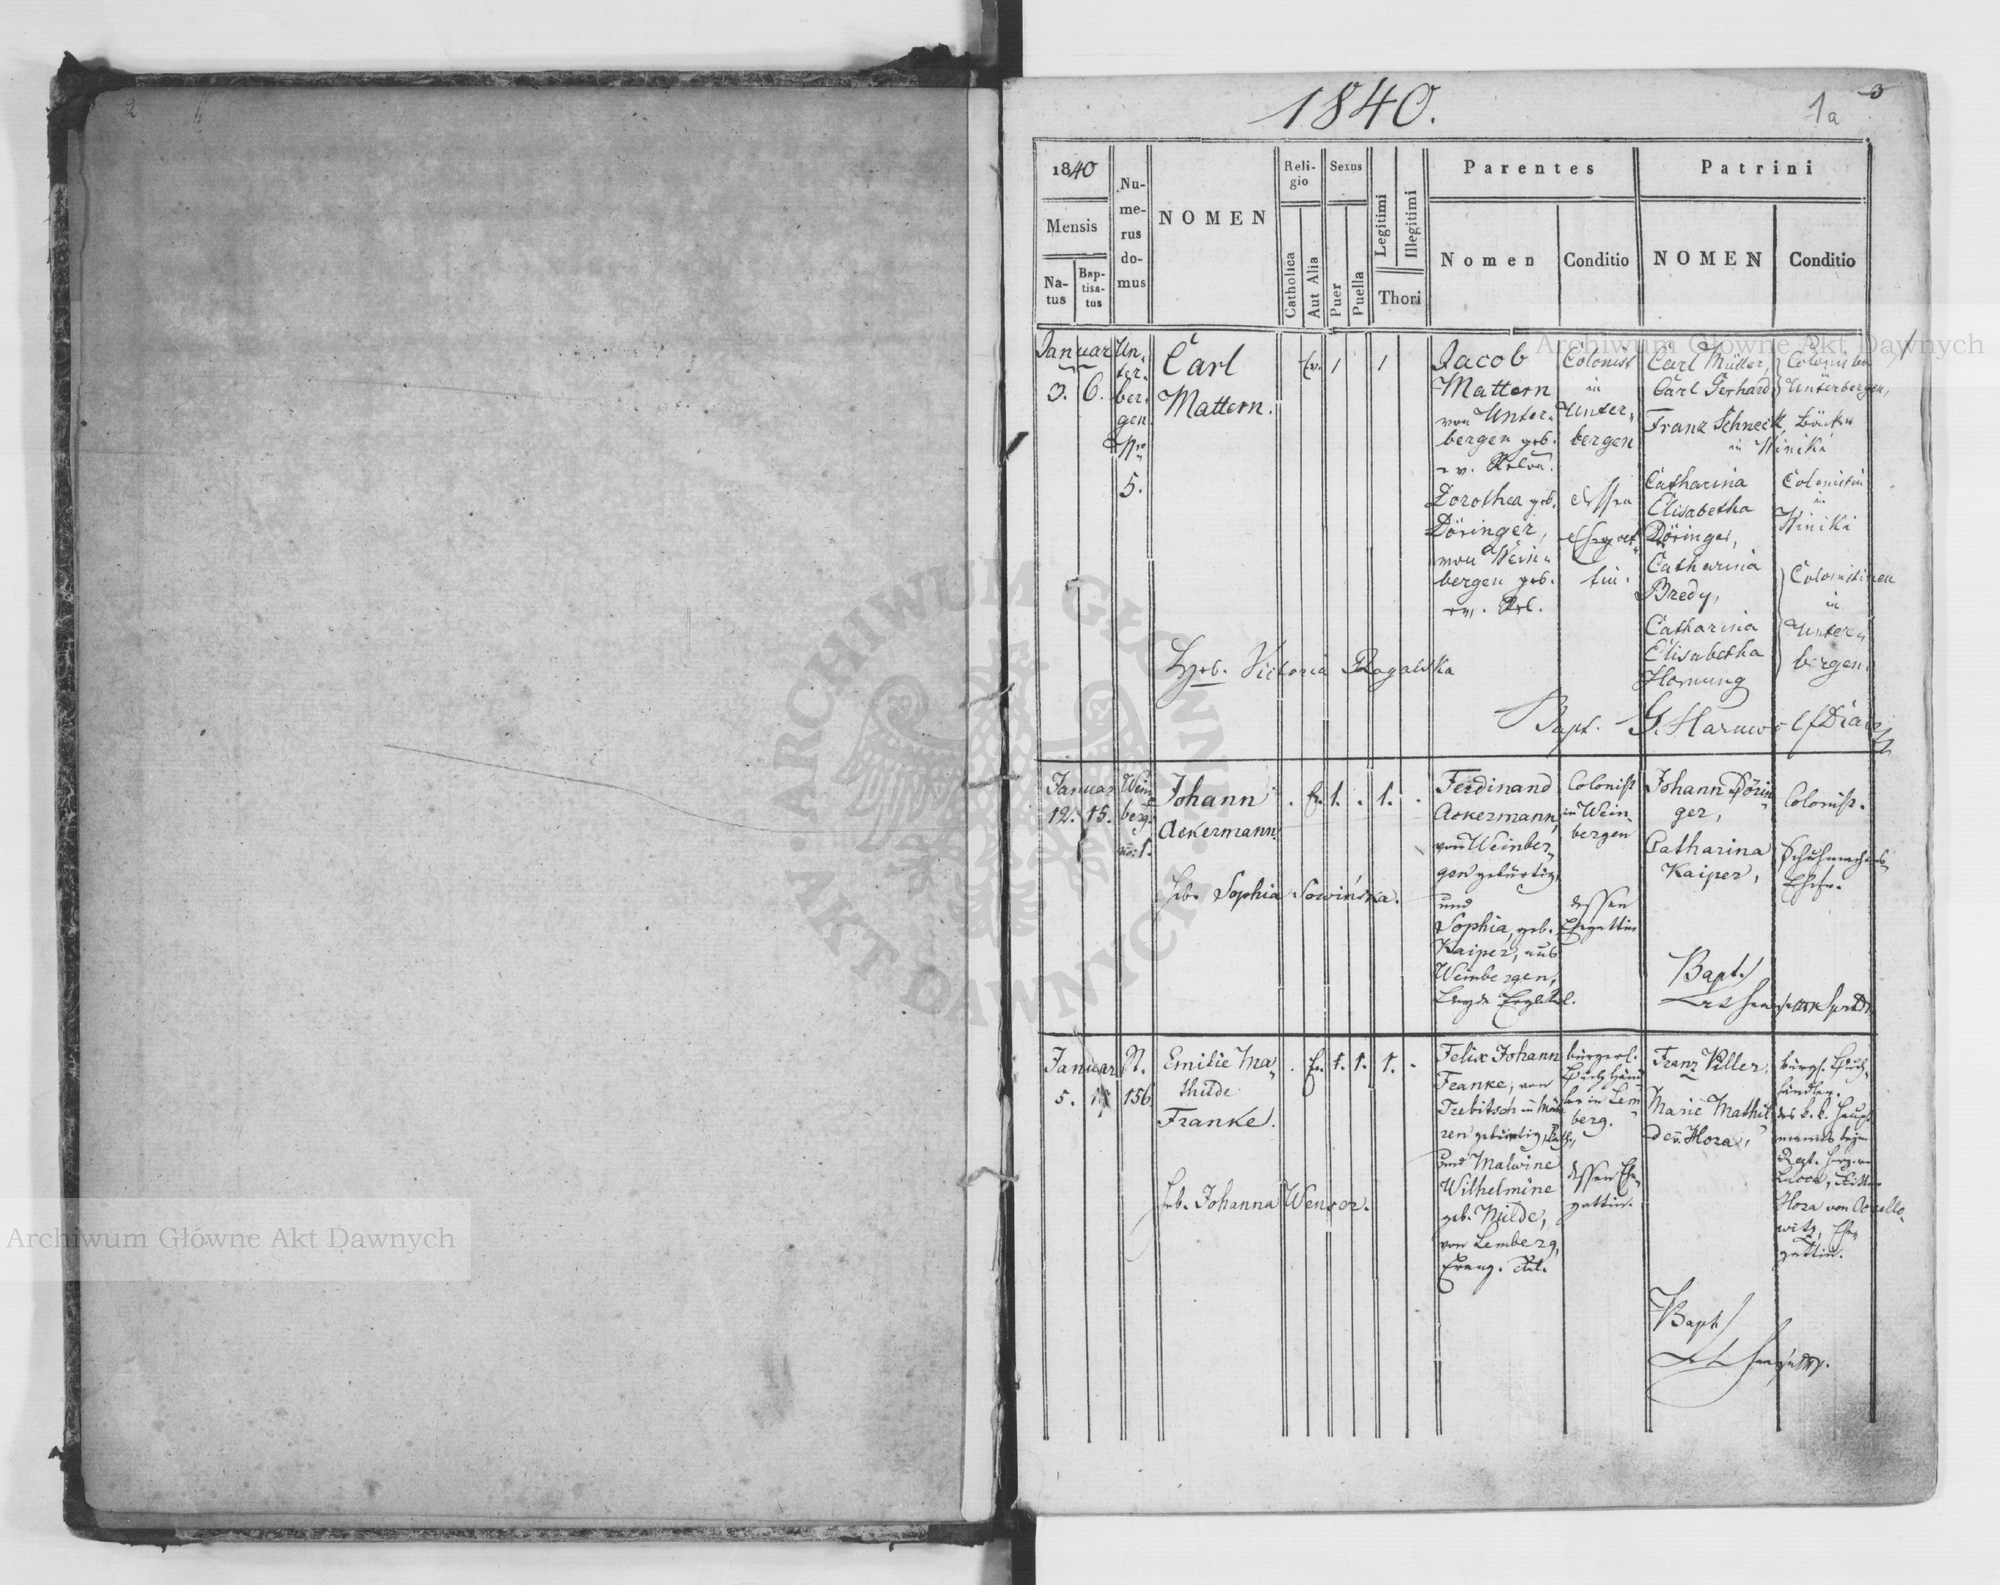 2
1840.
1a
3
1840
Mensis
Na-
tus
Bap-
tisa-
tus
Nu-
me-
rus
do-
mus
NOMEN
Reli-
gio
Catholica
Aut Alia
Sexus
Puer
Puella
Legitimi
Illegitimi
Thori
Parentes
Nomen
Conditio
Patrini
NOMEN
Conditio
Januar
3. 6.
Un-
ter-
ber-
gen
Nro
5.
Carl
Mattern.
Ev. 1 1
Jacob
Mattern
von Unter-
bergen geb.
Dorothea geb.
Döringer,
von Wein-
bergen geb.
Colonist
in
Unter-
bergen
dessen
Ehegat-
tin.
Carl Müller,
Carl Gerhard
Franz Schneik, Bäcker
in Winiki
Catharina
Elisabetha
Döringer,
Catharina
Bredy,
Catharina
Elisabetha
Hornung
Unterbergen,
Colonistin
in
Winiki
Colonistinen
in
Unter-
bergen.
Heb. Victoria Rogalska
Bapt.
Januar
12. 15.
Wein-
berg.
No: 1.
Johann
Ackermann.
. Ev. 1. . 1. .
Ferdinand
Ackermann,
von Weinber-
gen gebürtig,
und
Sophia, geb.
Kaiper, aus
Weinbergen,
Colonist
in Wein-
bergen
dessen
Ehegattin
Johann Dörin-
ger,
Catharina
Kaiper,
Colonist.
Schuhmachers
Ehefr.
Heb. Sophia Sowińska.
Bapt.
Januar
5.
St.
156
Emilie Ma-
thilde
Franke.
. Ev. 1. 1. 1. .
Felix Johann
Franke, von
Trebitsch in Mäh-
ren gebürtig, Kath.,
und Malwine
Wilhelmine
geb. Milde,
von Lemberg,
Evang.
bürgerl.
Buchhänd-
ler in Lem-
berg.
dessen Ehe-
gattin.
Franz Piller,
Marie Mathil-
de v. Hoza,
bürgl. Buch-
händler.
des k. k. Haupt-
manns beim
Hoza von
gattin.
Heb. Johanna Wenror.
Bapt
Archiwum Główne Akt Dawnych
Archiwum Główne Akt Dawnych
ARCHIWUM GŁÓWNE · AKT DAWNYCH ·